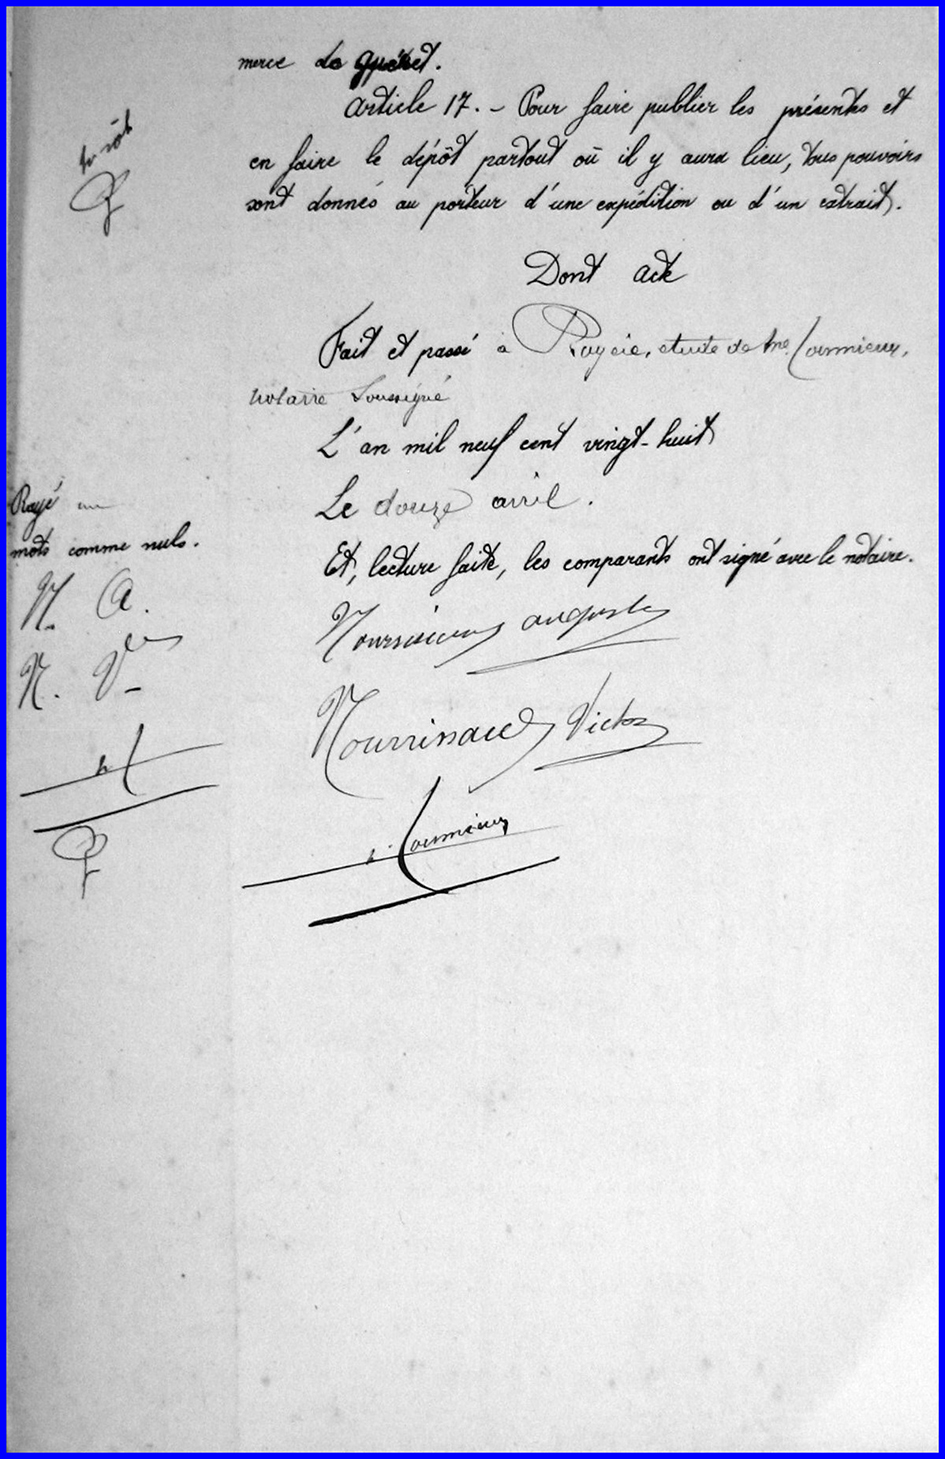 merce de Guéret.
Article 17. – Pour faire publier les présentes et
en faire le dépôt partout où il y aura lieu, tous pouvoirs
sont donnés au porteur d'une expédition ou d'un extrait.
Dont acte
Fait et passé à Royère, etude de Me Cormieux,
notaire Soussigné
L'an mil neuf cent vingt-huit
Le douze avril.
Et, lecture faite, les comparants ont signé avec le notaire.
Rayé un
mots comme nuls.
N. A.
N. V
auguste
Victor